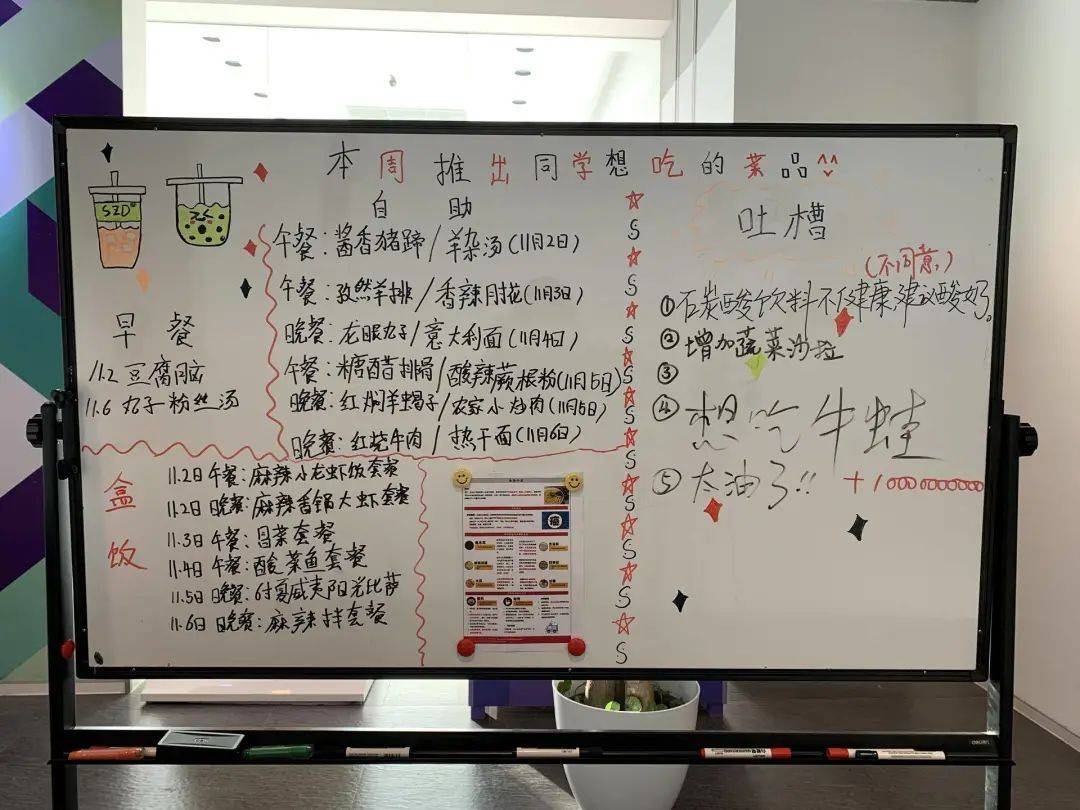 本周推出同学想吃的菜品
SZD
自助
午餐:酱香猪蹄/羊杂汤(11月2日)
午餐:孜然羊排/香辣肚花(11月3日)
晚餐:龙眼丸子/意大利面(11月4日)
午餐:糖醋排骨/酸辣蕨根粉(11月5日)
晚餐:红焖羊蝎子/农家小炒肉(11月5日)
晚餐:红烧牛肉/热干面(11月6日)
早餐
11.2豆腐脑
11.6丸子粉丝汤
盒饭
11.2日午餐:麻辣小龙虾饭套餐
11.2日晚餐:麻辣香锅大虾套餐
11.3日午餐:冒菜套餐
11.4日午餐:酸菜鱼套餐
11.5日晚餐:付夏威夷阳光比萨
11.6日晚餐:麻辣拌套餐
吐槽
(不同意)
①石炭酸饮料不健康,建议酸奶。
②增加蔬菜沙拉
③
④想吃牛蛙
⑤太油了!! +10000000000
deli